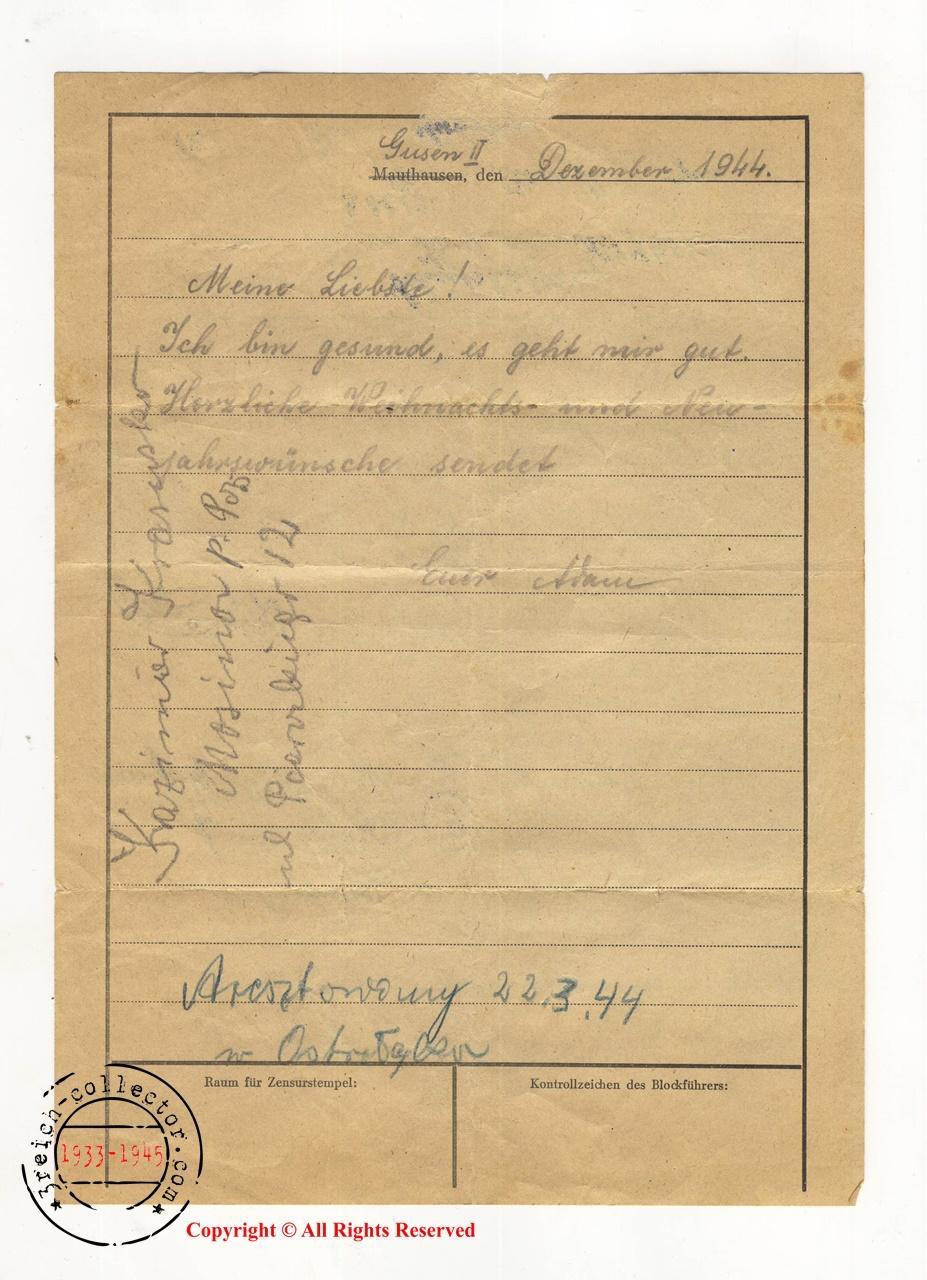 Gusen II
Mauthausen, den Dezember 1944.
Meine Liebste!
Ich bin gesund, es geht mir gut.
Herzliche Weihnachts- und Neu-
jahrswünsche sendet
Euer Adam
Kazimier
12
Aresztowany 22.3.44
w
Raum für Zensurstempel:
Kontrollzeichen des Blockführers:
3reich-collector.com
1933-1945
Copyright © All Rights Reserved